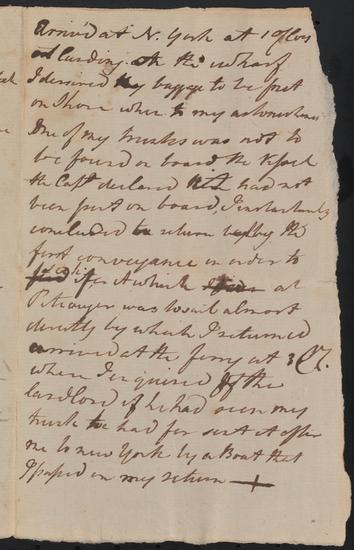 Arrived at N. York at 1 oClock
at Landing on the wharf
I desired my baggage to be put
on Shore when to my astonishment
One of my trunks was not to
be found on board the Vessel
the Capt declared it had not
been put on board, I instantly
concluded to return by the
first conveyance in order to
for it which at
was to sail almost
directly by which I returned
arrived at the ferry at 3
where I enquired of the
landlord if he had seen my
trunk he had sent it after
me to new York by a Boat that
I passed in my return